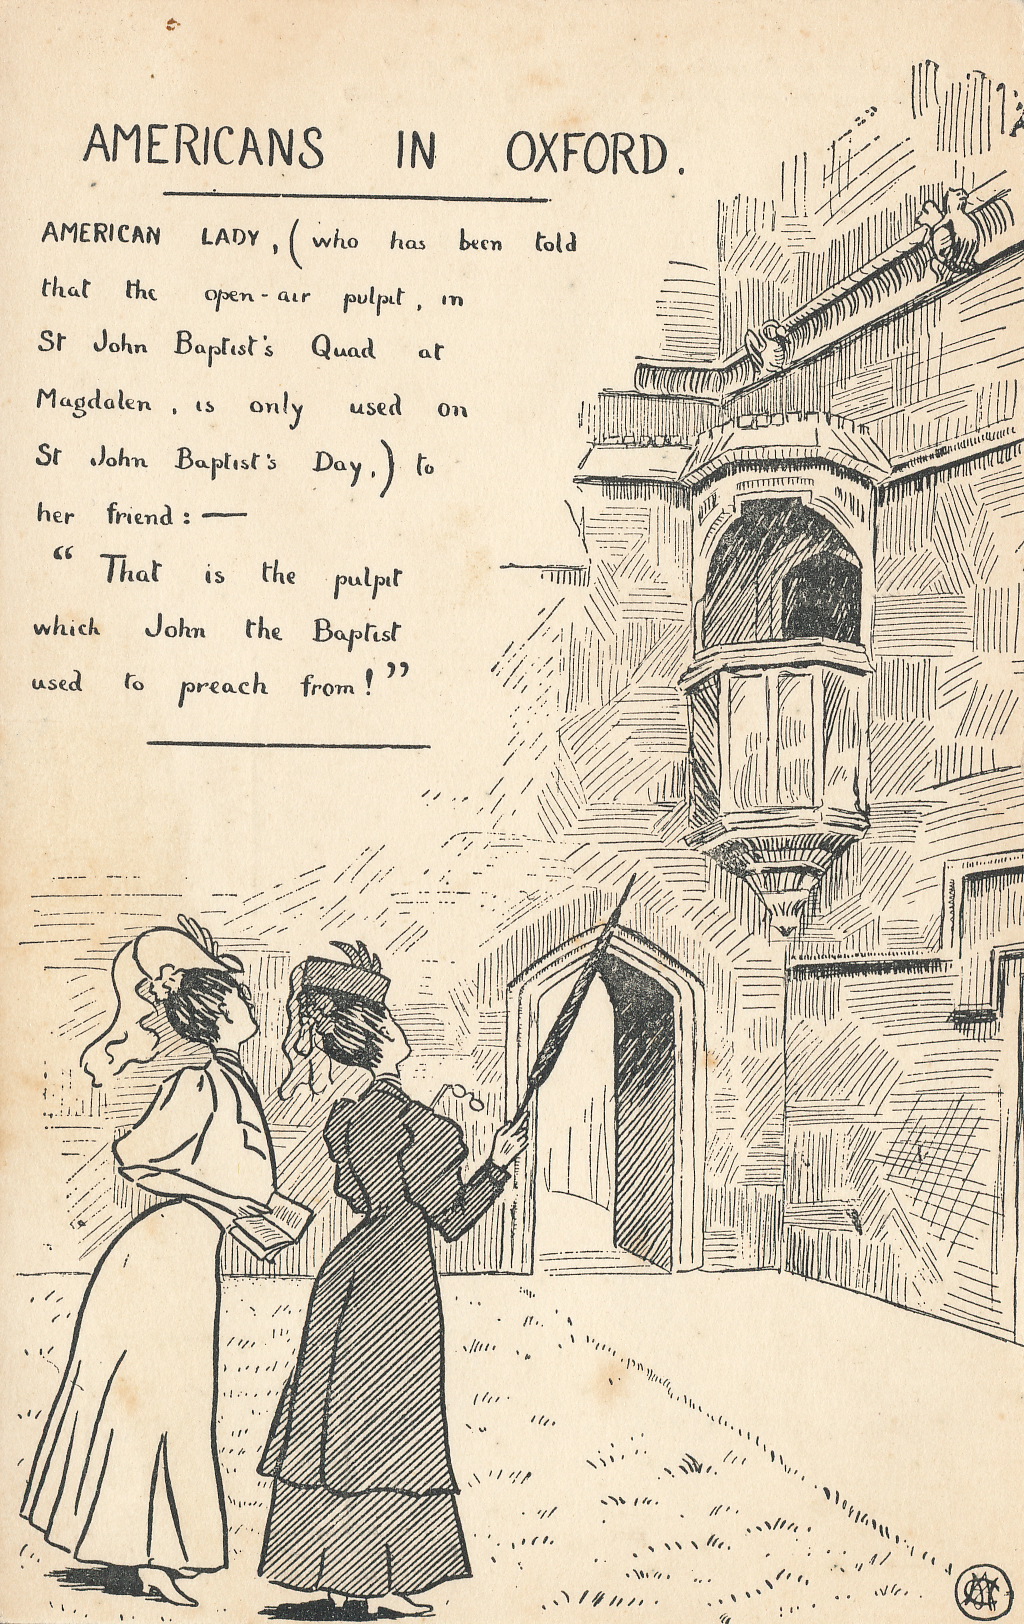 AMERICANS IN OXFORD.
AMERICAN LADY, (who has been told
that the open-air pulpit, in
St John Baptist's Quad at
Magdalen, is only used on
St John Baptist's Day,) to
her friend: —
"That is the pulpit
which John the Baptist
used to preach from!"